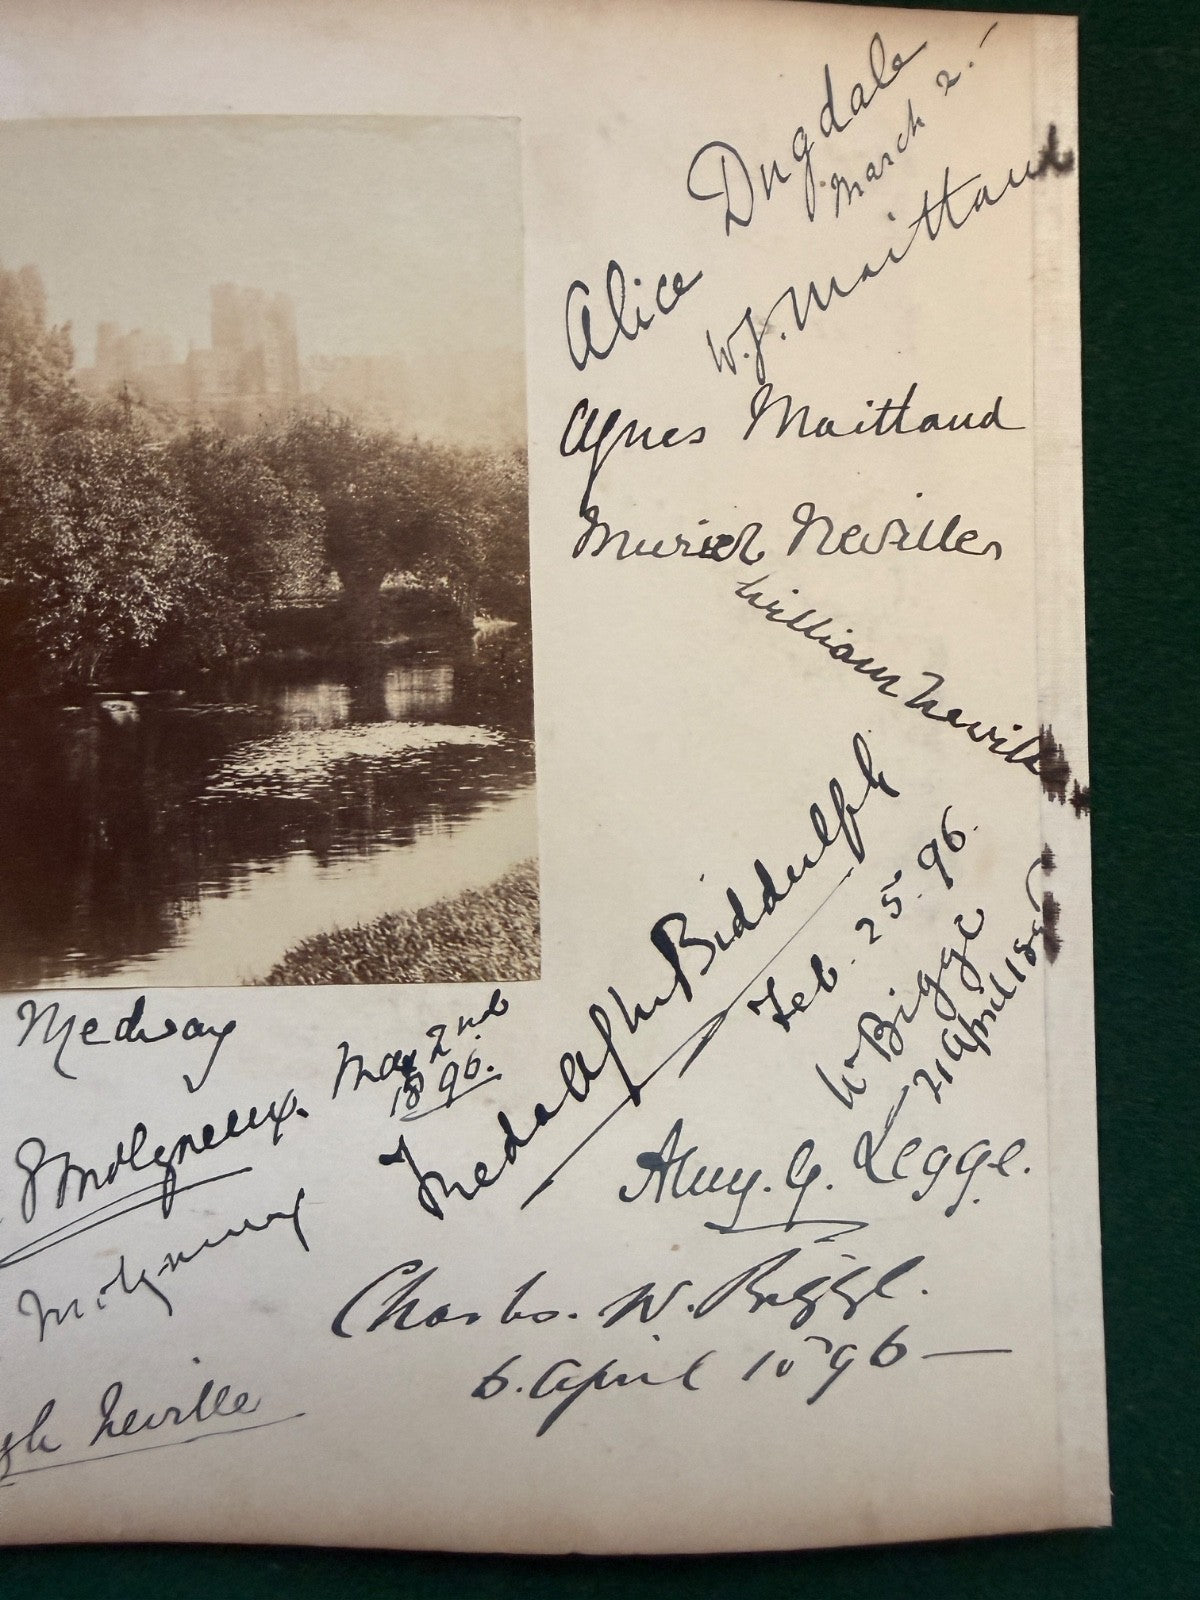 Alice Dugdale
March 2.
W.J. Maitland
Agnes Maitland
Muriel Neville
William Neville
Biddulph
Feb. 25. 96.
W Bigge
21 April 189
Medway
Molyneux. May 2nd
1896.
Molyneux
Amy. G. Legge.
Charles. W. Bigge.
6. April 1896
gh Neville